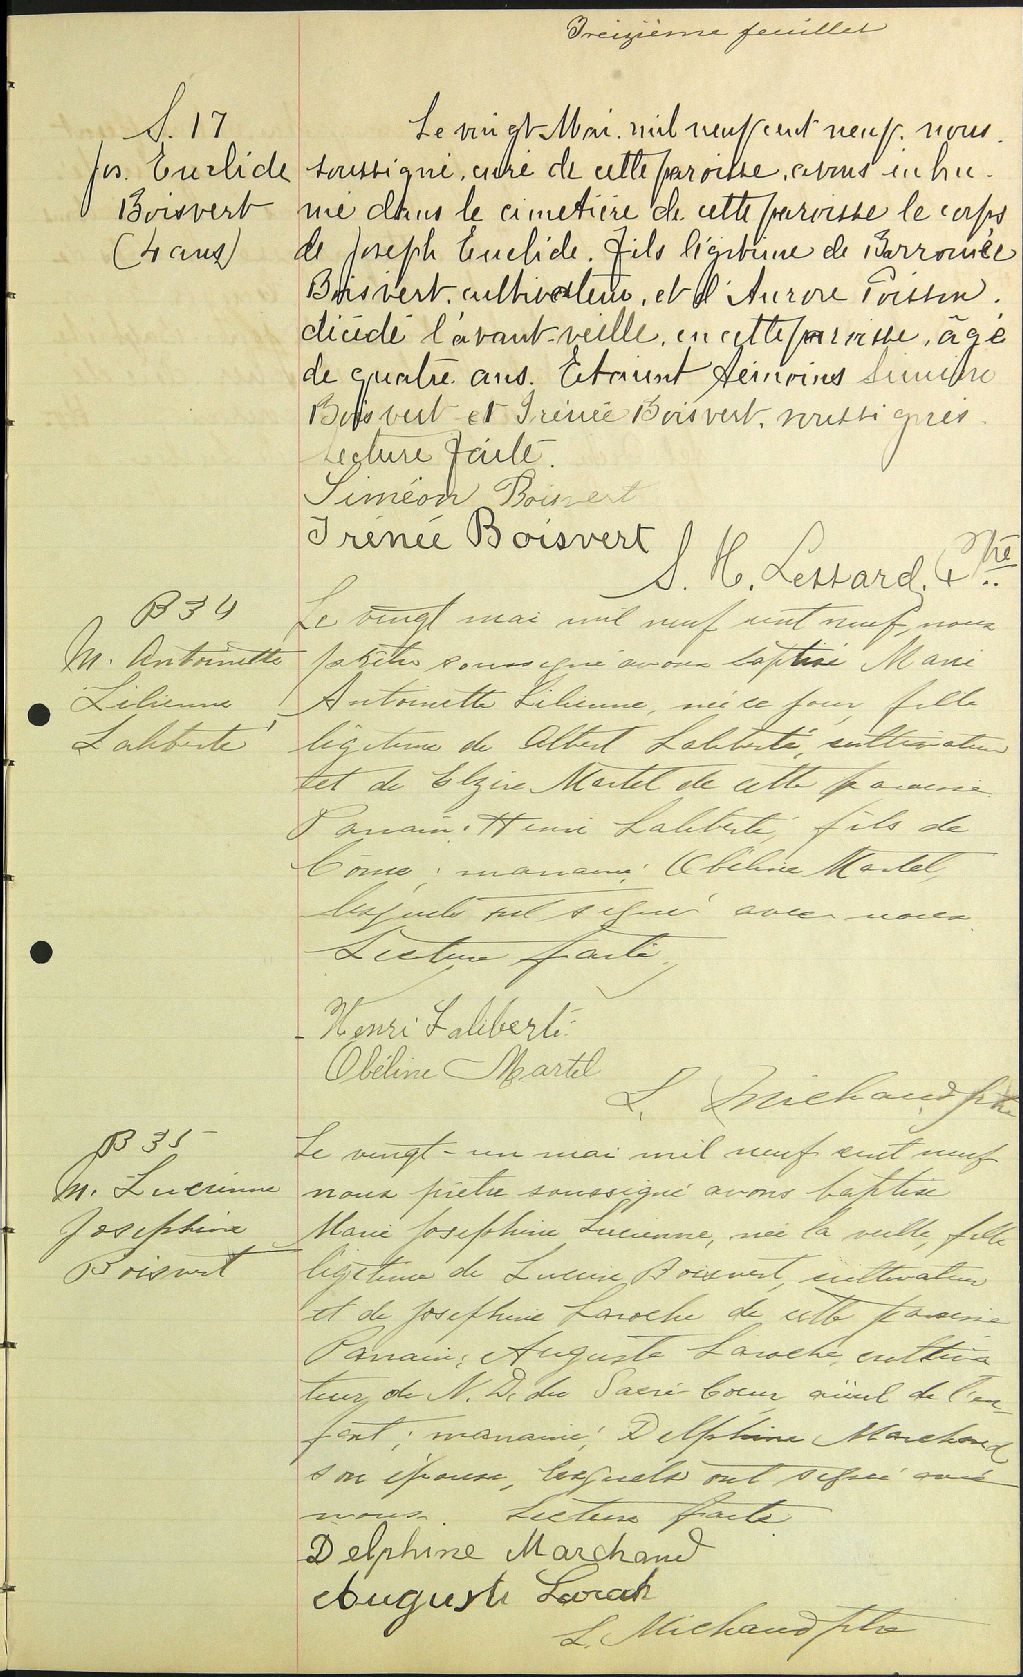 Treizième feuillet
S. 17
Jos. Euclide
Boisvert
(4 ans)
Le vingt Mai, mil neuf cent neuf, nous
soussigné, curé de cette paroisse, avons inhu-
mé dans le cimetière de cette paroisse le corps
de Joseph Euclide, fils légitime de
Boisvert, cultivateur, et d'Aurore Poisson,
décédé l'avant-veille, en cette paroisse, âgé
de quatre ans. Etaient témoins Siméon
Boisvert et Irénée Boisvert, soussignés.
Lecture faite.
Siméon Boisvert
Irénée Boisvert
S. H. Lessard, Ptre
B 34
M. Antoinette
Lilienne
Laliberté
Le vingt mai mil neuf cent neuf, nous
prêtre soussigné avons baptisé Marie
Antoinette Lilienne, née ce jour, fille
légitime de Albert Laliberté, cultivateur
et de Elzire Martel de cette paroisse
Parrain: Henri Laliberté, fils de
Côme; marraine: Obéline Martel,
lesquels ont signé avec nous
Lecture faite
Henri Laliberté
Obéline Martel
L. Michaud ptre
B 35
M. Lucienne
Josephine
Boisvert
Le vingt-un mai mil neuf cent neuf
nous prêtre soussigné avons baptisé
Marie Josephine Lucienne, née la veille, fille
légitime de Boisvert, cultivateur
et de Josephine Laroche de cette paroisse
Parrain: Auguste Laroche, cultiva
teur de N. D. du Sacré-Coeur aïeul de l'en-
fant; marraine: Delphine Marchand
son épouse, lesquels ont signé avec
nous. Lecture faite
Delphine Marchand
Auguste Laroch
L. Michaud ptre